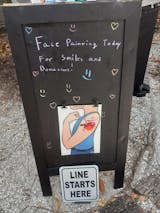 Face Painting Today
For Smiles and
Donations!
LINE
STARTS
HERE